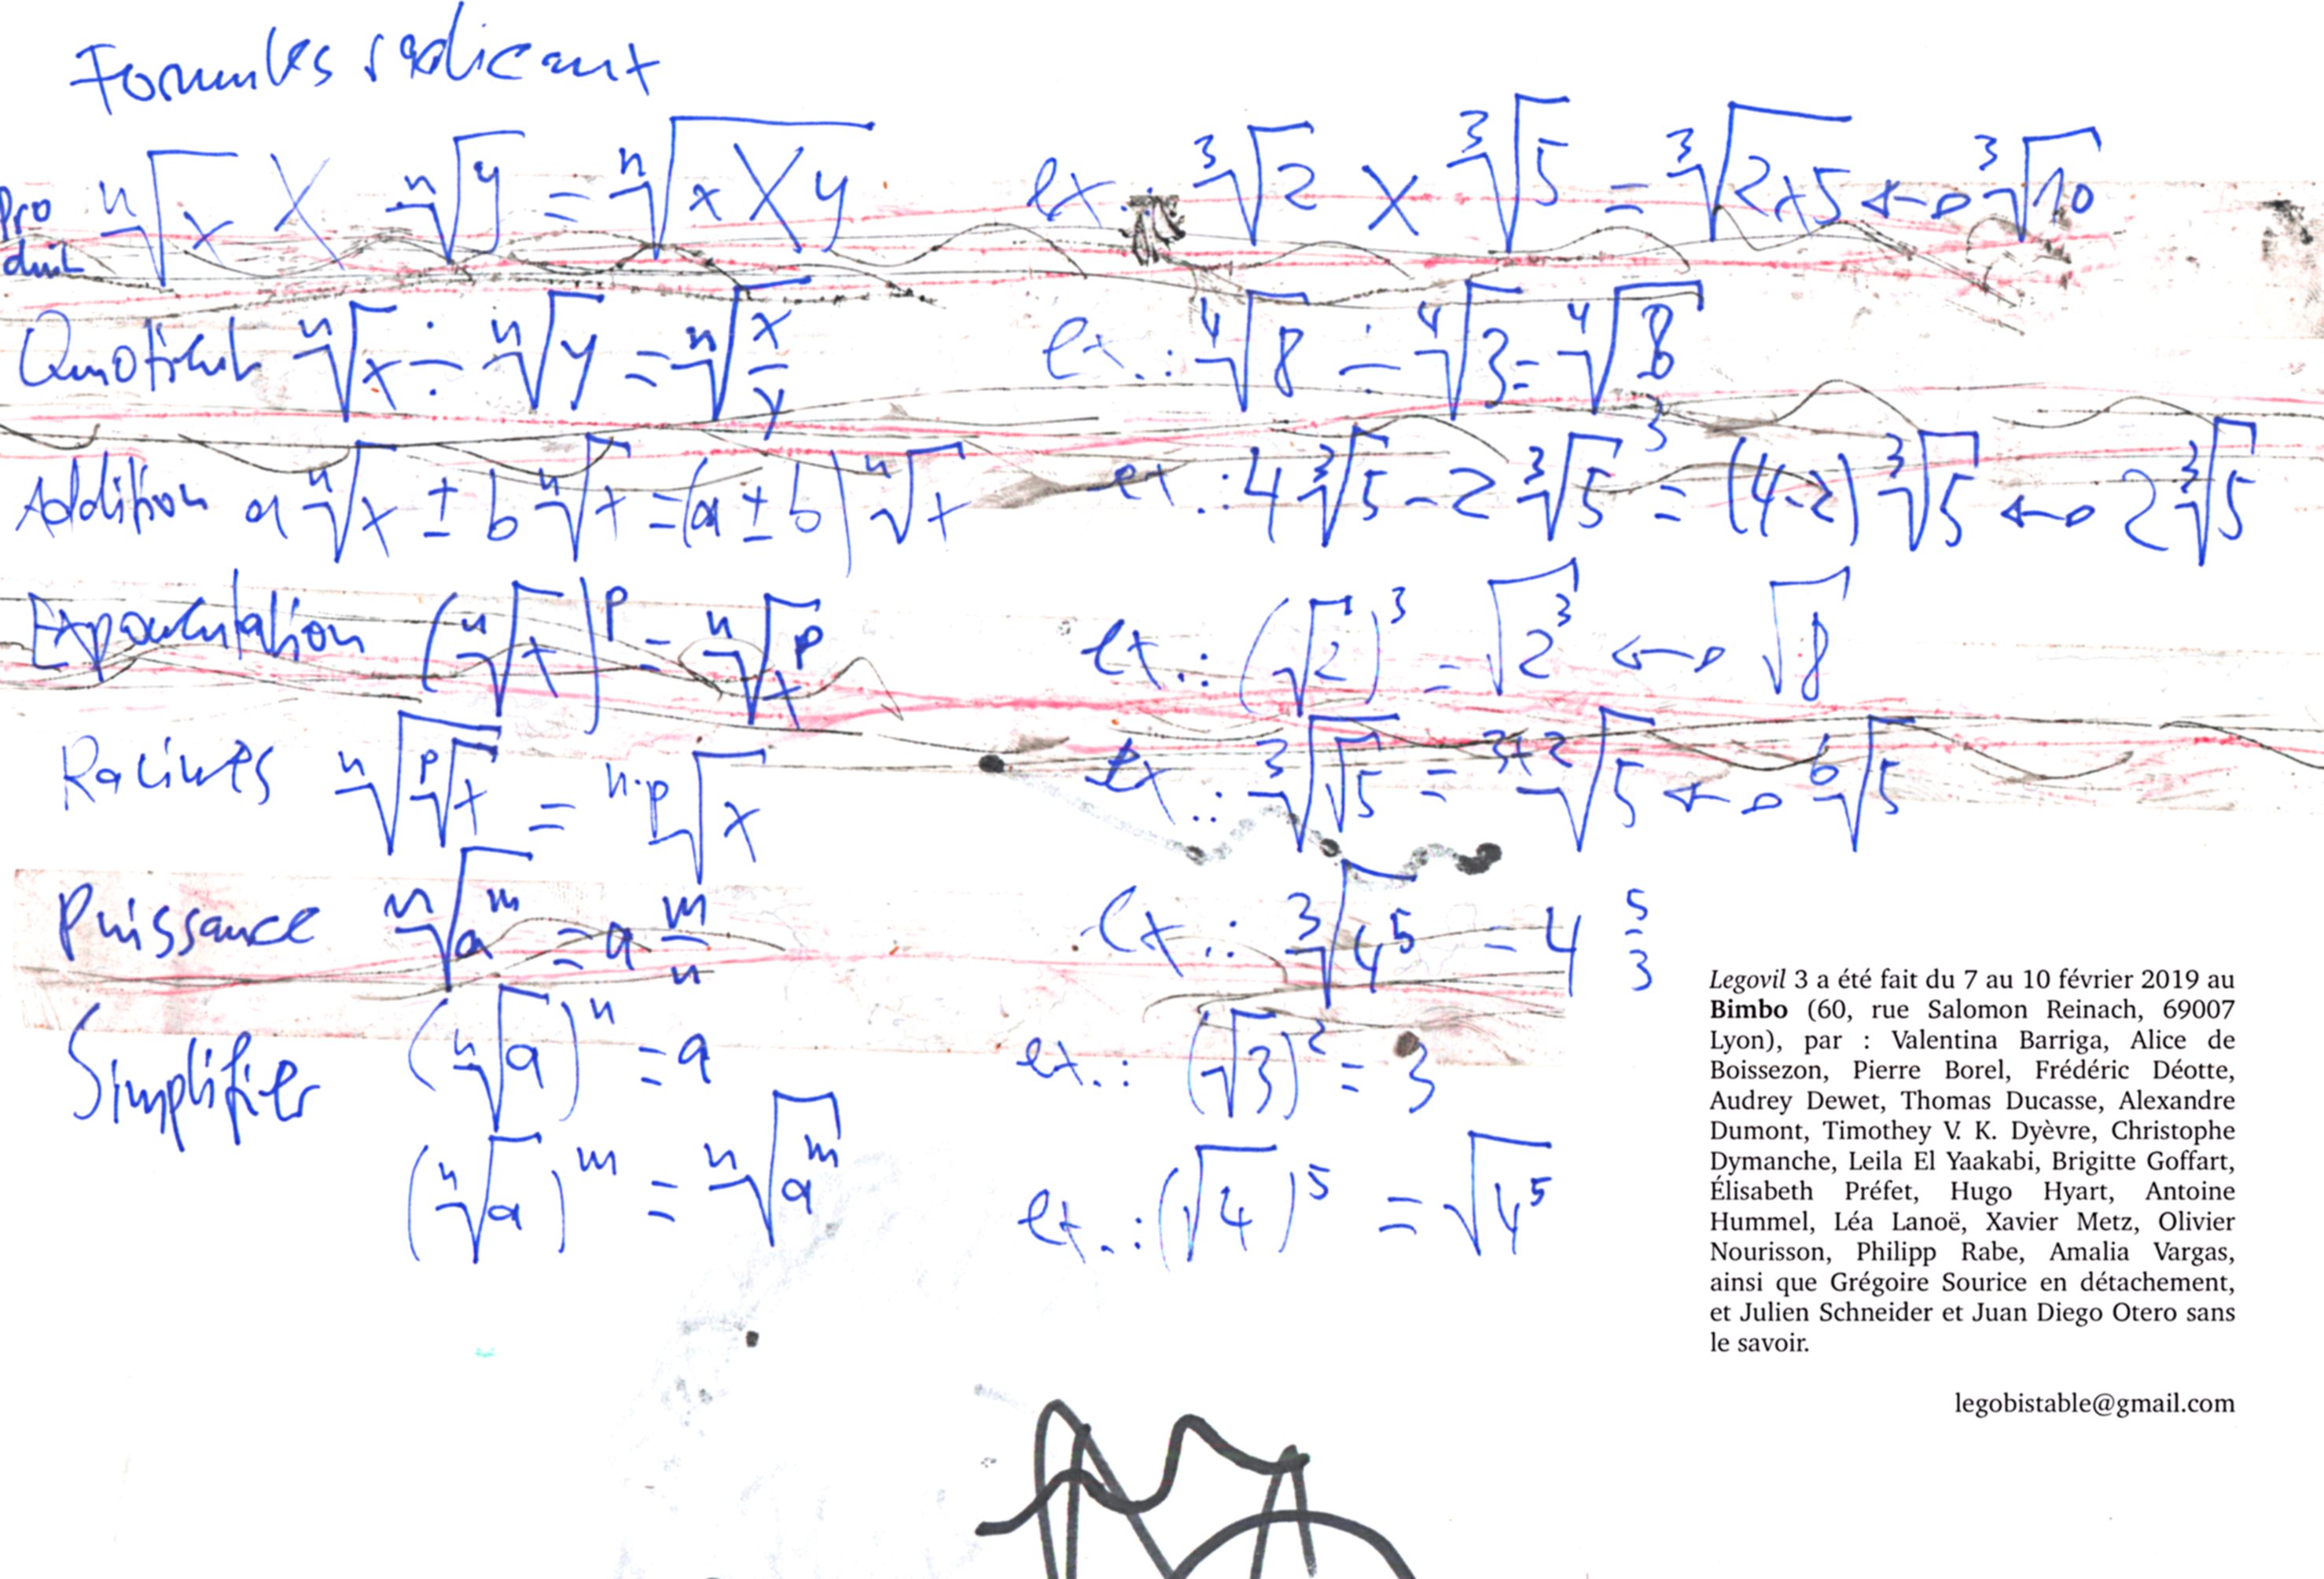 Formules radicaux
Produit ⁿ√x × ⁿ√y = ⁿ√(x × y) ex.: ³√2 × ³√5 = ³√(2×5) ↔ ³√10
Quotient ⁿ√x ÷ ⁿ√y = ⁿ√(x/y) ex.: ⁴√8 ÷ ⁴√3 = ⁴√(8/3)
Addition a ⁿ√x ± b ⁿ√x = (a ± b) ⁿ√x ex.: 4 ³√5 - 2 ³√5 = (4-2) ³√5 ↔ 2 ³√5
Exponentation (ⁿ√x)ᵖ = ⁿ√xᵖ ex.: (√2)³ = √2³ ↔ √8
Racines ⁿ√(ᵖ√x) = ⁿ·ᵖ√x ex.: ³√√5 = ³ˣ²√5 ↔ ⁶√5
Puissance ⁿ√aᵐ = a^(m/n) ex.: ³√4⁵ = 4^(5/3)
Simplifier (ⁿ√a)ⁿ = a ex.: (√3)² = 3
(ⁿ√a)ᵐ = ⁿ√aᵐ ex.: (√4)⁵ = √4⁵
Legovil 3 a été fait du 7 au 10 février 2019 au
Bimbo (60, rue Salomon Reinach, 69007
Lyon), par : Valentina Barriga, Alice de
Boissezon, Pierre Borel, Frédéric Déotte,
Audrey Dewet, Thomas Ducasse, Alexandre
Dumont, Timothey V. K. Dyèvre, Christophe
Dymanche, Leila El Yaakabi, Brigitte Goffart,
Élisabeth Préfet, Hugo Hyart, Antoine
Hummel, Léa Lanoë, Xavier Metz, Olivier
Nourisson, Philipp Rabe, Amalia Vargas,
ainsi que Grégoire Sourice en détachement,
et Julien Schneider et Juan Diego Otero sans
le savoir.
legobistable@gmail.com